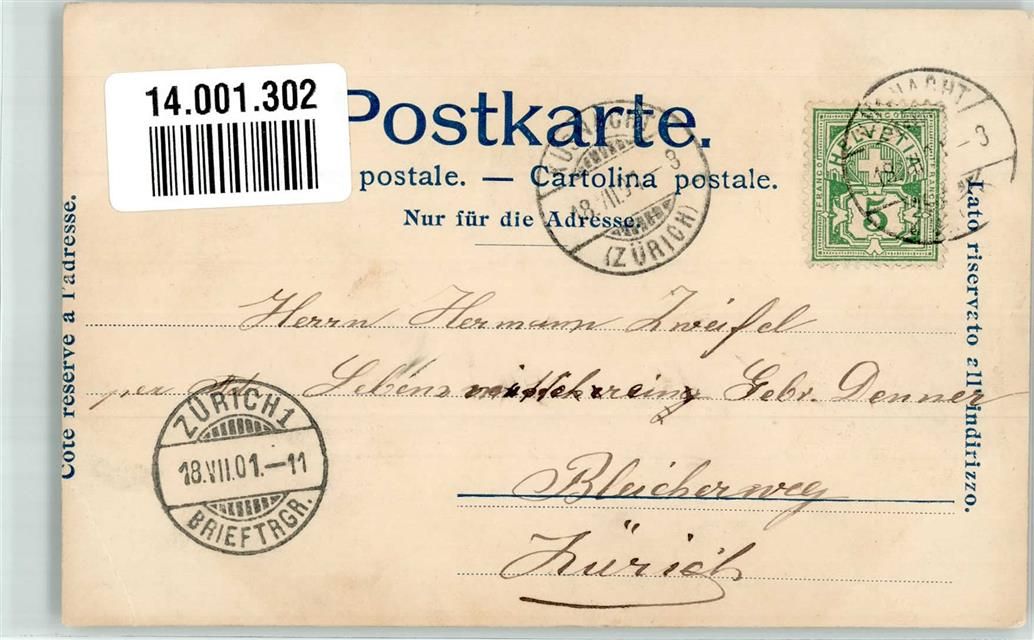 14.001.302
Postkarte.
postale. — Cartolina postale.
Nur für die Adresse.
Côté réservé à l'adresse.
Lato riservato all'indirizzo.
KÜSNACHT
18.VII.01.-8
(ZÜRICH)
NACHT
-8
HELVETIA
FRANCO
FRANCO
5
Herrn Hermann Zweifel
per Adr. Lebens Gebr. Denner
Bleicherweg
Zürich
ZÜRICH 1
18.VII.01.-11
BRIEFTRGR.